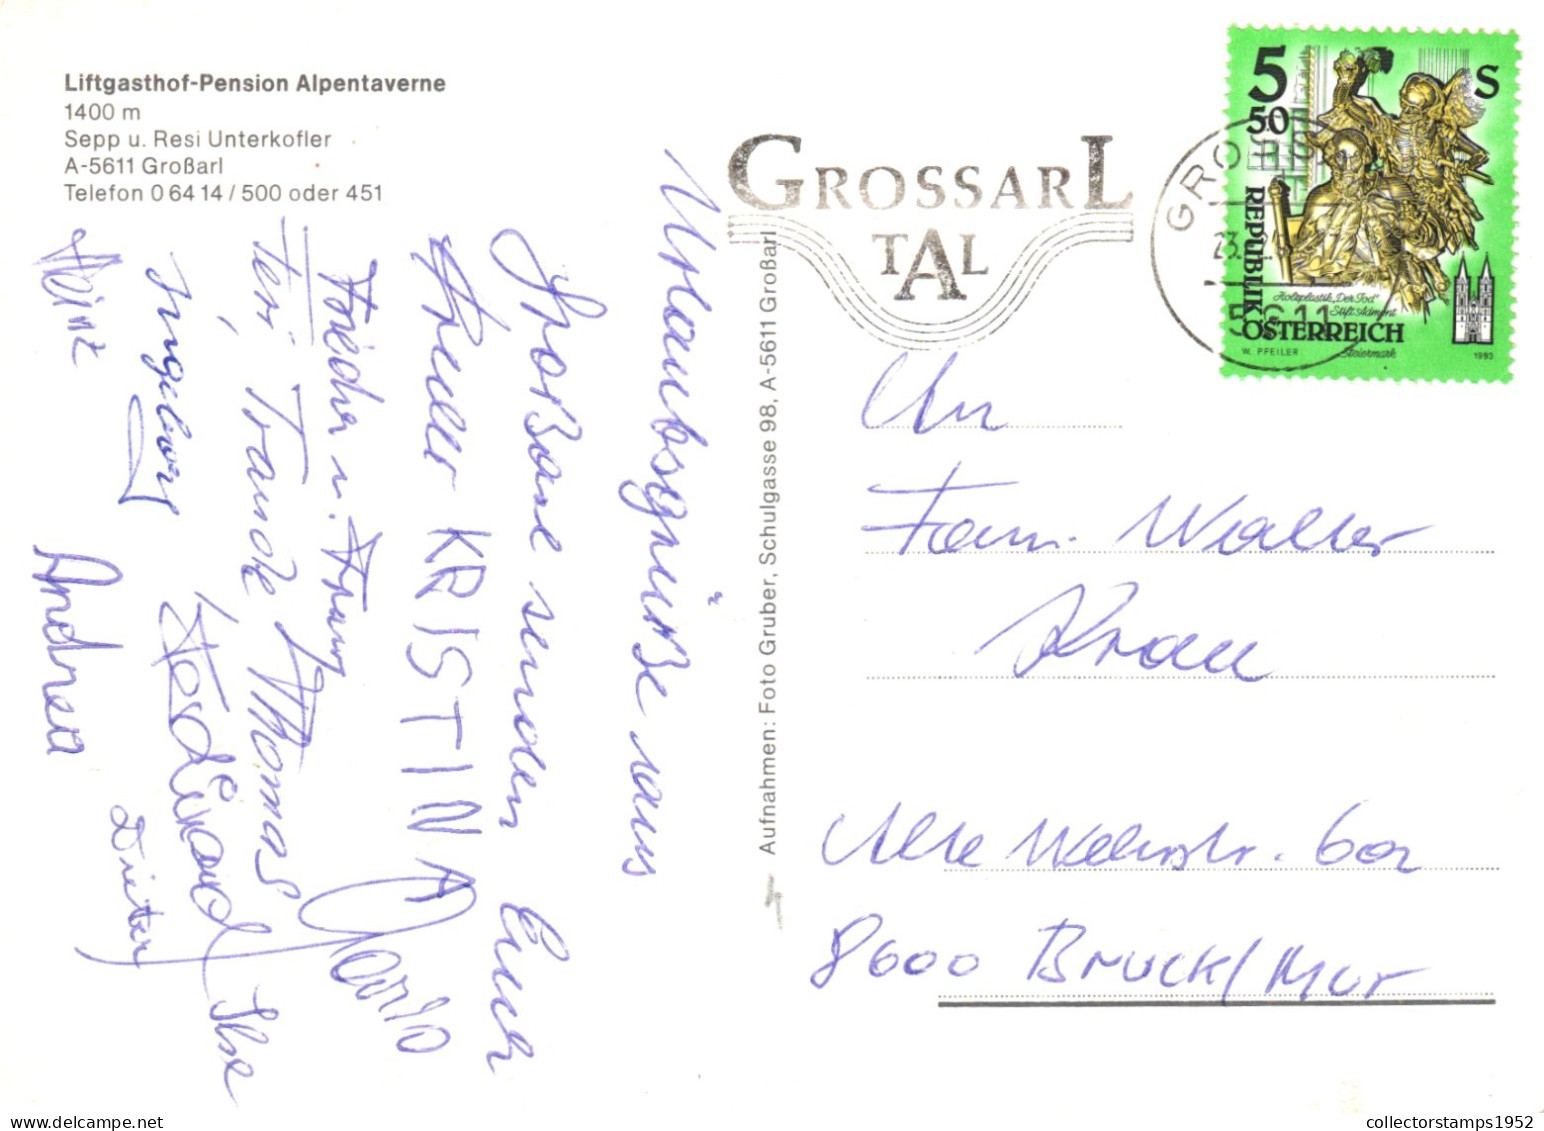 Liftgasthof-Pension Alpentaverne
1400 m
Sepp u. Resi Unterkofler
A-5611 Großarl
Telefon 0 64 14 / 500 oder 451
Urlaubsgrüße aus
Großarl senden Euch
KRISTINA
Mario
Frieda u.
Traude Thomas
Ilse
Heinz
Ingeborg
Ferdinand
Dieter
Andrea
Aufnahmen: Foto Gruber, Schulgasse 98, A-5611 Großarl
GROSSARL
TAL
5611
5 50 S
REPUBLIK
ÖSTERREICH
Holzplastik „Der Tod"
Stift Admont
Steiermark
W. PFEILER
1993
An
Fam. Walter
Krau
Alte
60a
8600 BRUCK/MUR
collectorstamps1952